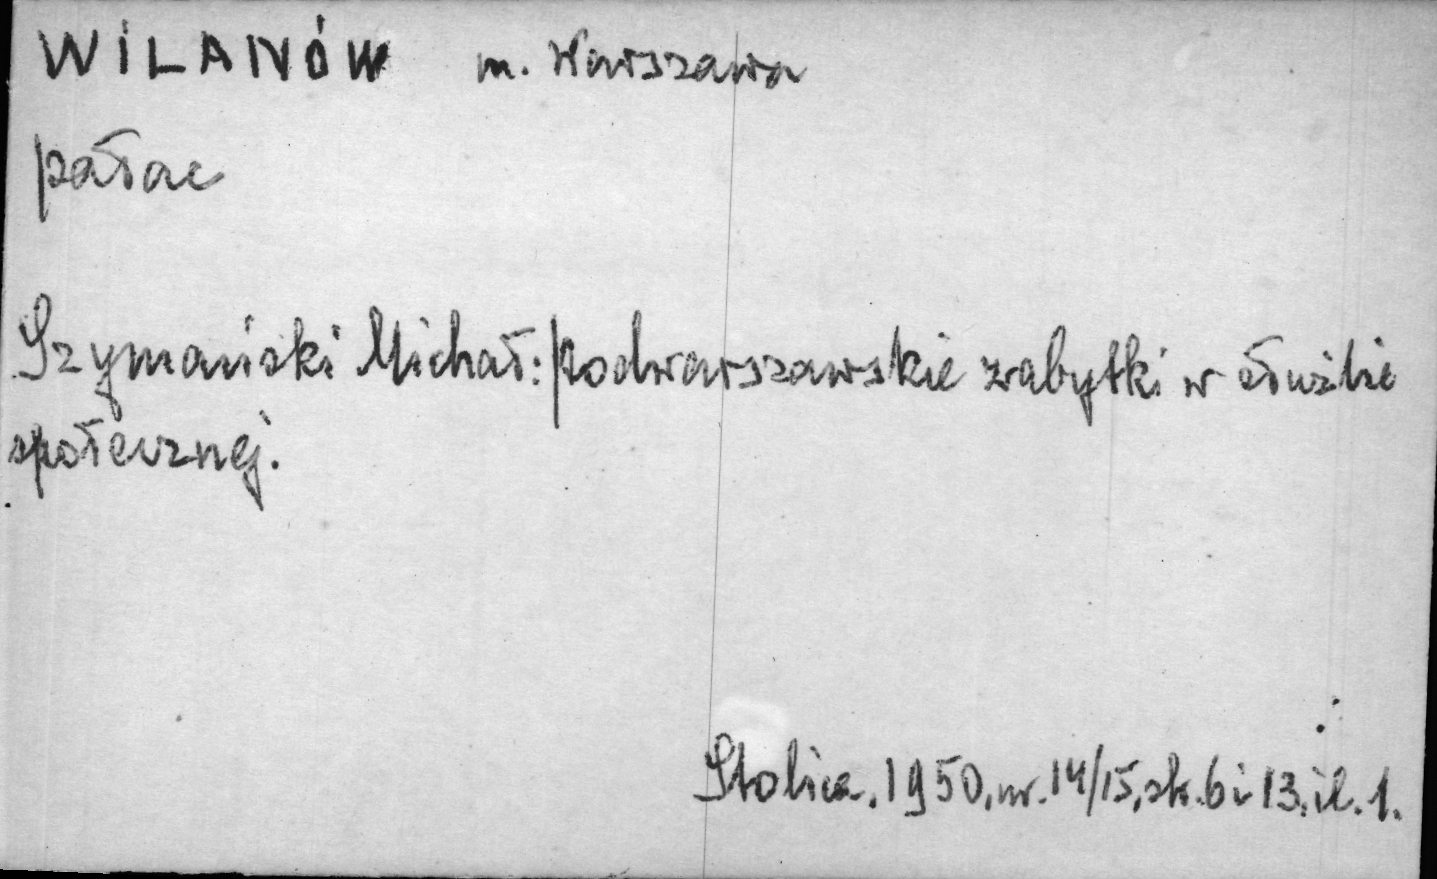 WILANÓW m. Warszawa
pałac
Szymański Michał: Podwarszawskie zabytki w służbie
społecznej.
Stolica. 1950. nr. 14/15, str. 6 i 13. il. 1.